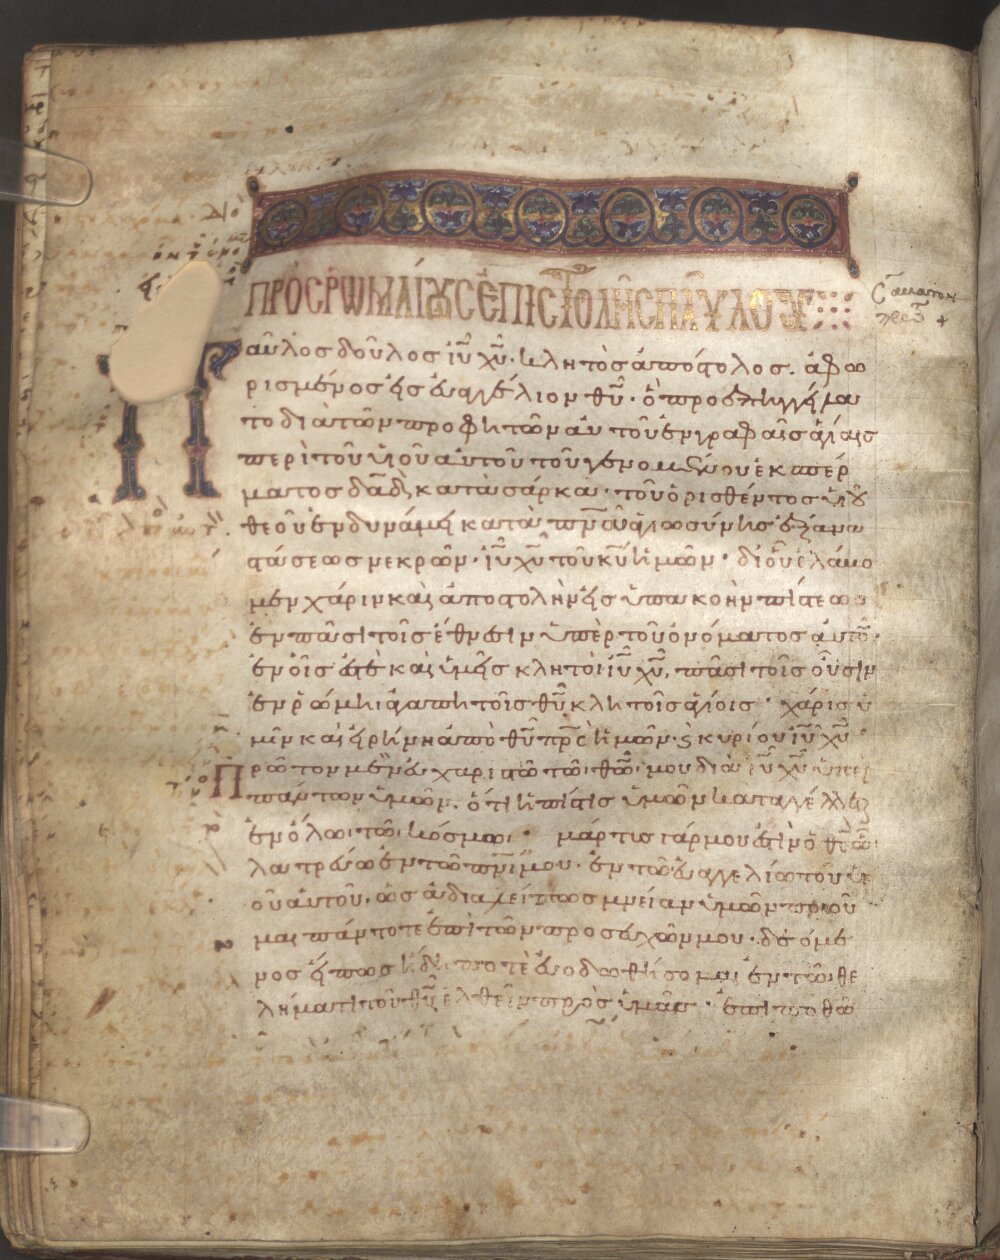 ΠΡΟΣ ΡΩΜΑΙΟΥΣ ΕΠΙΣΤΟΛΗ ΣΠΑΥΛΟΥ
αῦλος δοῦλος ἰῦ χῦ· κλητὸς ἀπόστολος. ἀφω
ρισμένος εἰς εὐαγγέλιον θῦ· ὃ προεπηγγείλα
το διὰ τῶν προφητῶν αὐτοῦ ἐν γραφαῖς ἁγίαις
περὶ τοῦ υἱοῦ αὐτοῦ τοῦ γενομένου ἐκ σπέρ
ματος δᾱδ κατὰ σάρκα· τοῦ ὁρισθέντος υἱοῦ
θεοῦ ἐν δυνάμει κατὰ πνᾱ ἁγιωσύνης ἐξ ἀνα
στάσεως νεκρῶν· ἰῦ χῦ τοῦ κῦ ἡμῶν· δι οὗ ἐλάβο
μεν χάριν καὶ ἀποστολὴν εἰς ὑπακοὴν πίστεως
ἐν πᾶσι τοῖς ἔθνεσιν ὑπὲρ τοῦ ὀνόματος αὐτοῦ·
ἐν οἷς ἐστὲ καὶ ὑμεῖς κλητοὶ ἰῦ χῦ, πᾶσι τοῖς οὖσιν
ἐν ῥώμηι ἀγαπητοῖς θῦ κλητοῖς ἁγίοις· χάρις ὑ
μῖν καὶ εἰρήνη ἀπὸ θῦ πρ̅ς ἡμῶν· ϗ κυρίου ἰῦ χῦ·
Πρῶτον μὲν εὐχαριστῶ τῶ θῶ μου διὰ ἰῦ χῦ ὑπὲρ
πάντων ὑμῶν. ὅτι ἡ πίστις ὑμῶν καταγέλλε
ἐν ὅλω τῶ κόσμω· μάρτυς γάρ μου ἐστὶν ὁ θς ὧ
λατρεύω ἐν τῶ πνι μου· ἐν τῶ εὐαγγελίω τοῦ υἱ
οῦ αὐτοῦ, ὡς ἀδιαλείπτως μνείαν ὑμῶν ποιοῦ
μαι πάντοτε ἐπὶ τῶν προσευχῶν μου· δεόμε
νος εἴπως ἤδη ποτὲ εὐοδωθήσομαι ἐν τῶ θε
λήματι τοῦ θῦ ἐλθεῖν πρὸς ὑμᾶς· ἐπιποθῶ